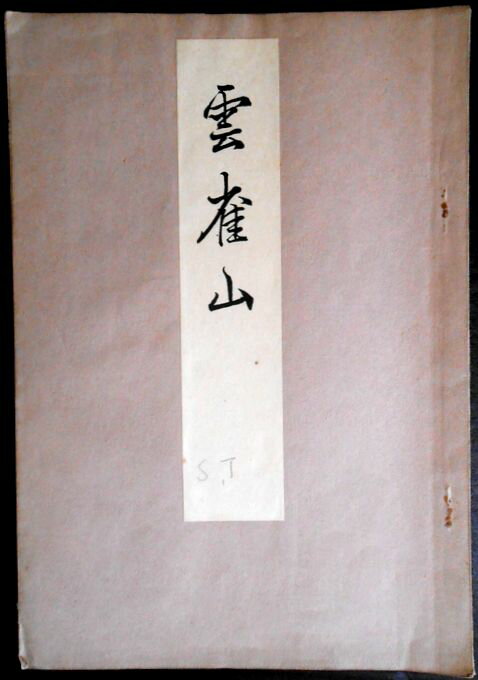 雲雀山
S.J